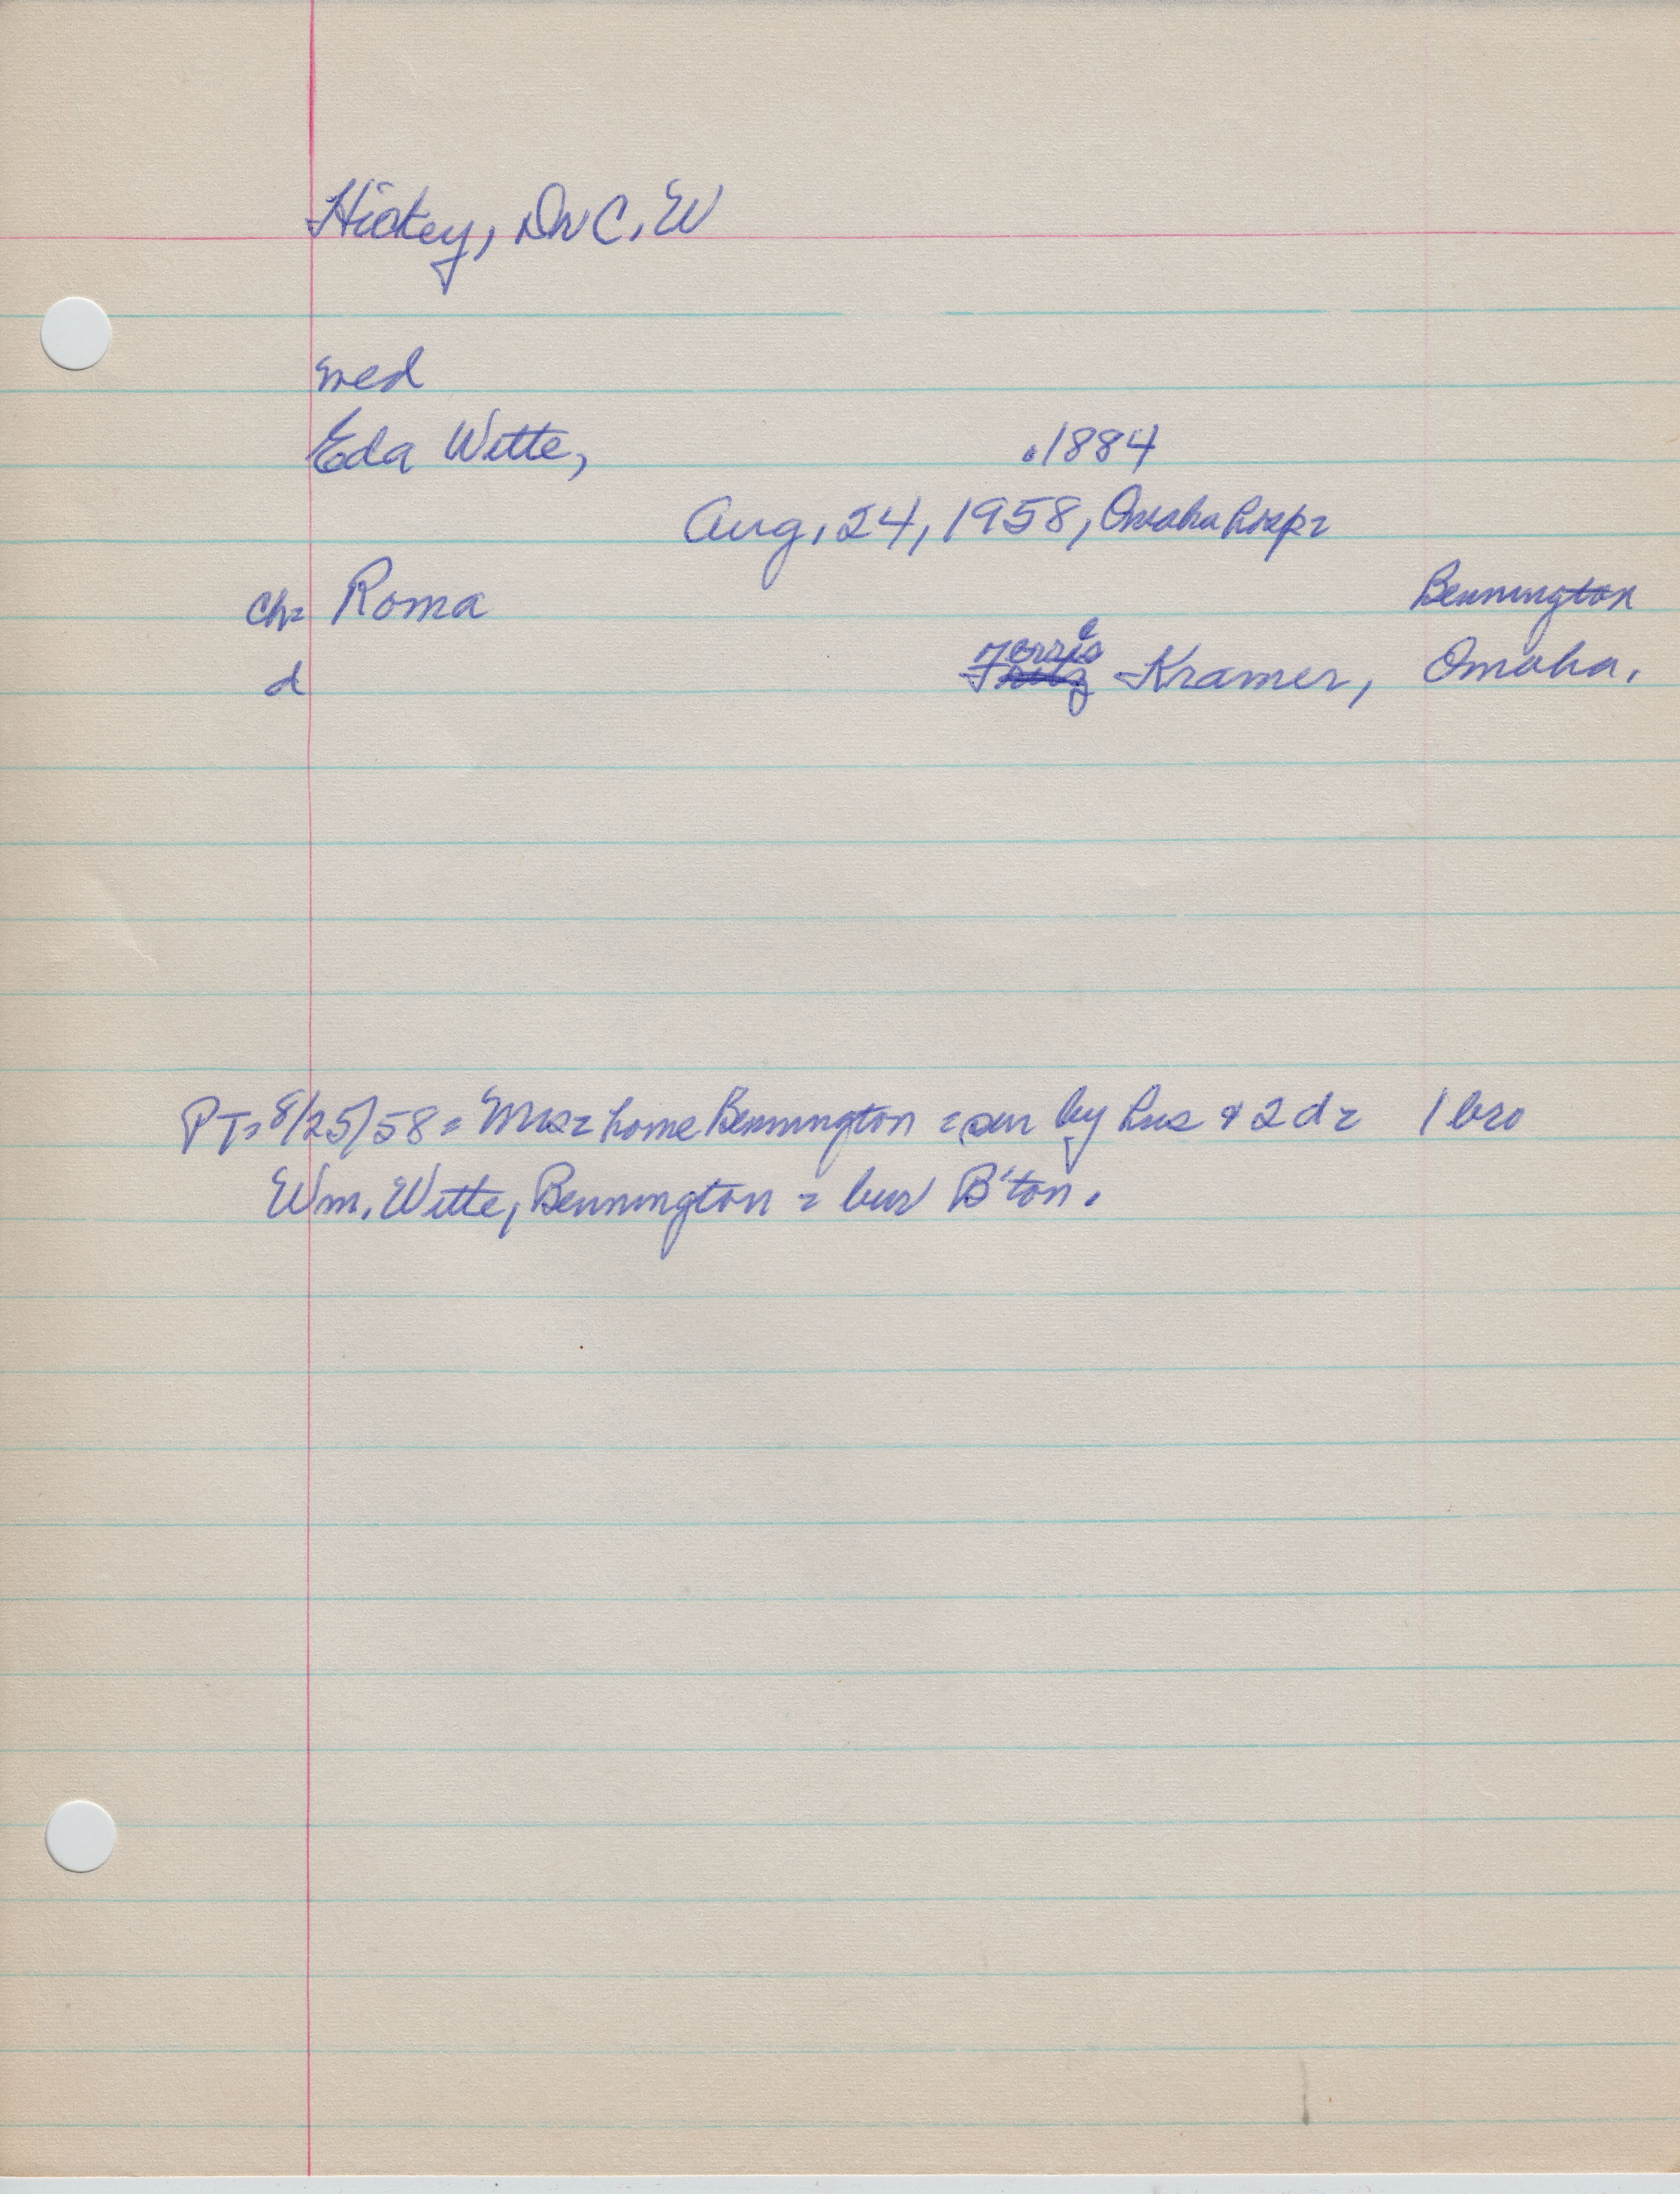 Hickey, Dr C. W
med
Eda Witte, .1884
Aug. 24, 1958, Omaha hosp=
Bennington
ch= Roma
d Kramer, Omaha.
PT= 8/25/58 = Mrs= home Bennington = sur by hus & 2 d= 1 bro
Wm. Witte, Bennington = bur B'ton.